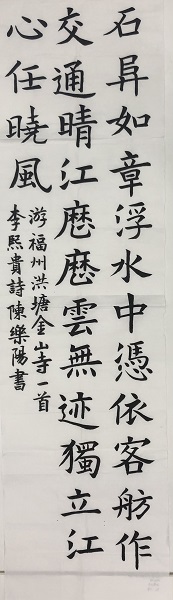 石如章浮水中憑依客舫作
交通晴江歷歷雲無迹獨立江
心任曉風
游福州洪塘金山寺一首
李熙貴詩陳樂陽書